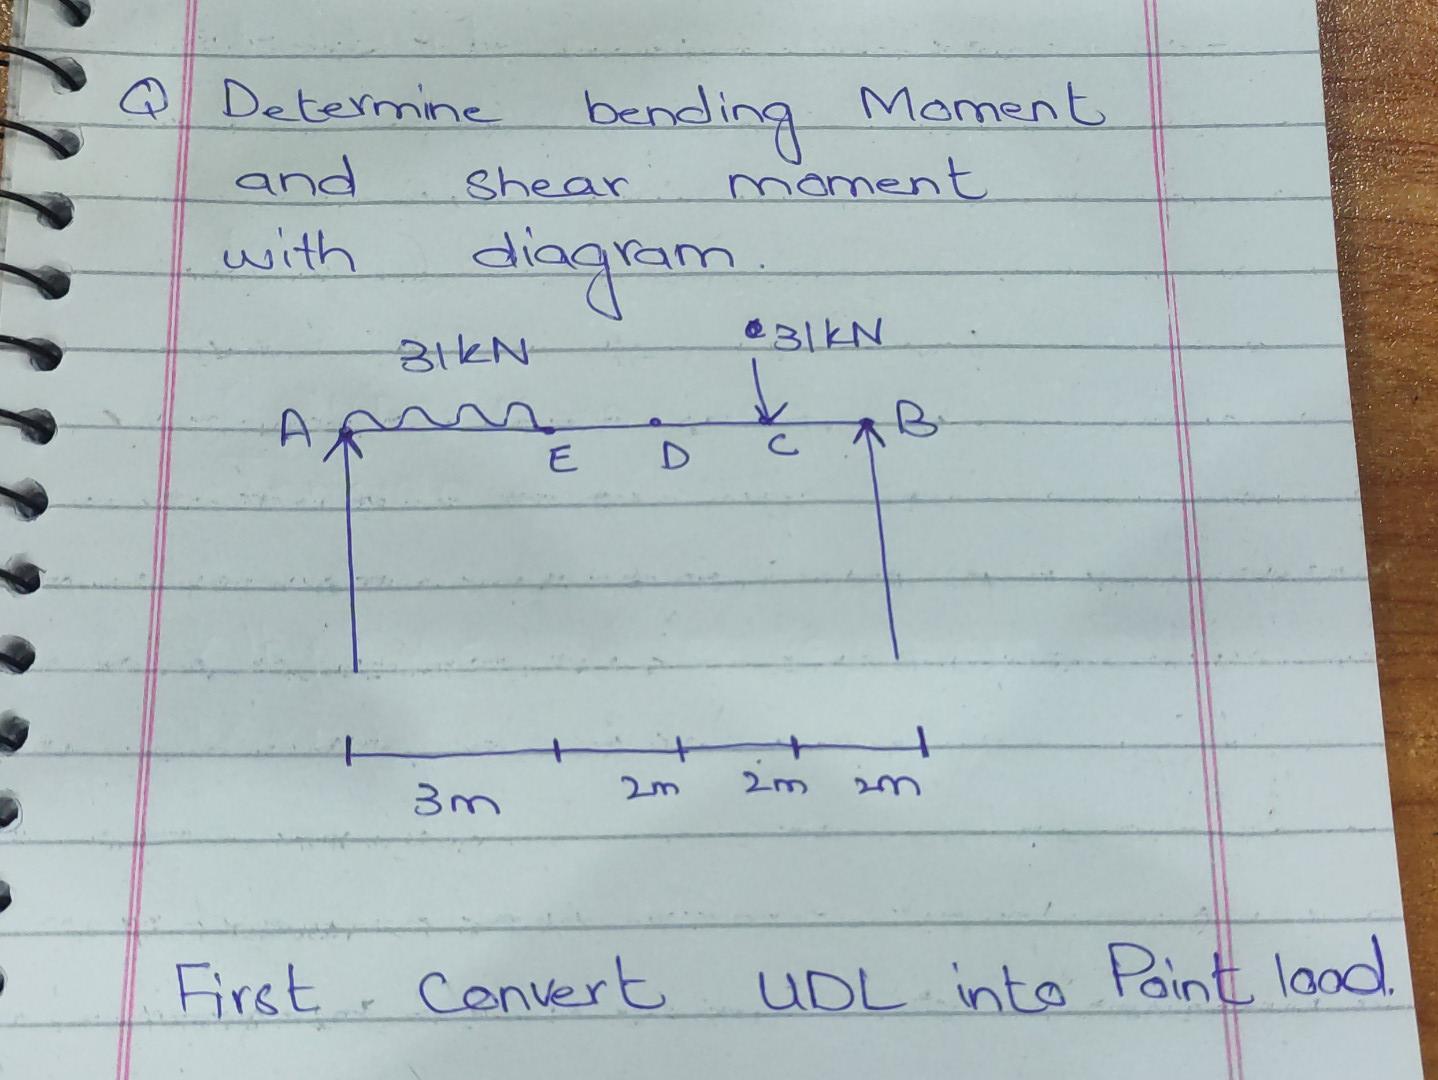 Q Determine bending Moment
and shear moment
with diagram.
31kN
31kN
A
B
E D C
3m 2m 2m 2m
First Convert UDL into Point load.